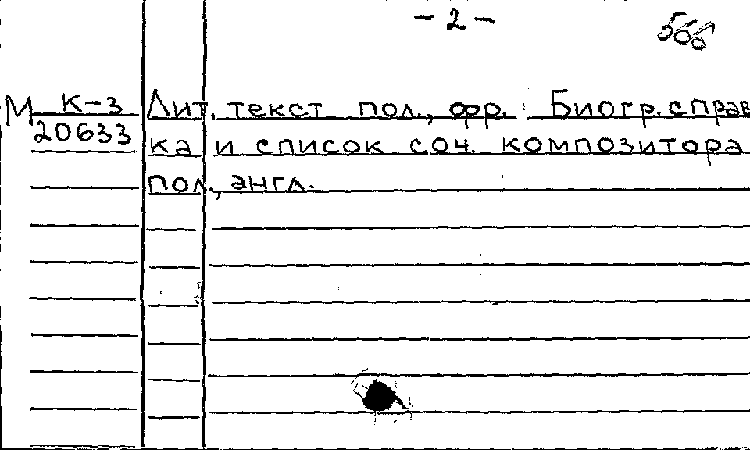 - 2 -
М К-3
20633
Лит. текст пол., фр. Биогр. справ
ка и список соч. композитора
пол., англ.